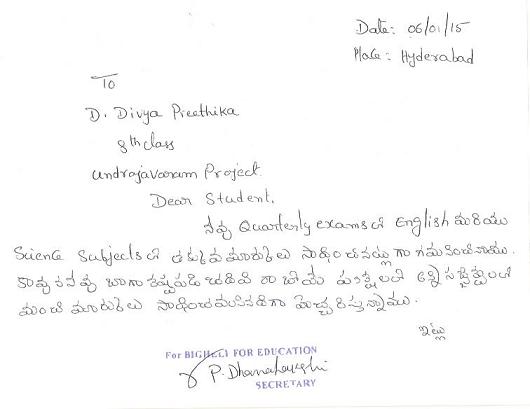 Date: 06/01/15
Place: Hyderabad
To
D. Divya Preethika
8th class
Undrajavaram Project.
Dear Student,
నీవు Quarterly exams లో English మరియు
Science Subjects లో తక్కువ మార్కులు సాధించినట్లు గా గమనించినాము.
కావున నీవు బాగా కష్టపడి చదివి రాబోయే పరీక్షలలో అన్ని సబ్జెక్ట్లలో
మంచి మార్కులు సాధించవలసినదిగా హెచ్చరిస్తున్నాము.
ఇట్లు
For BIGHELP FOR EDUCATION
P. Dhanalakshmi
SECRETARY